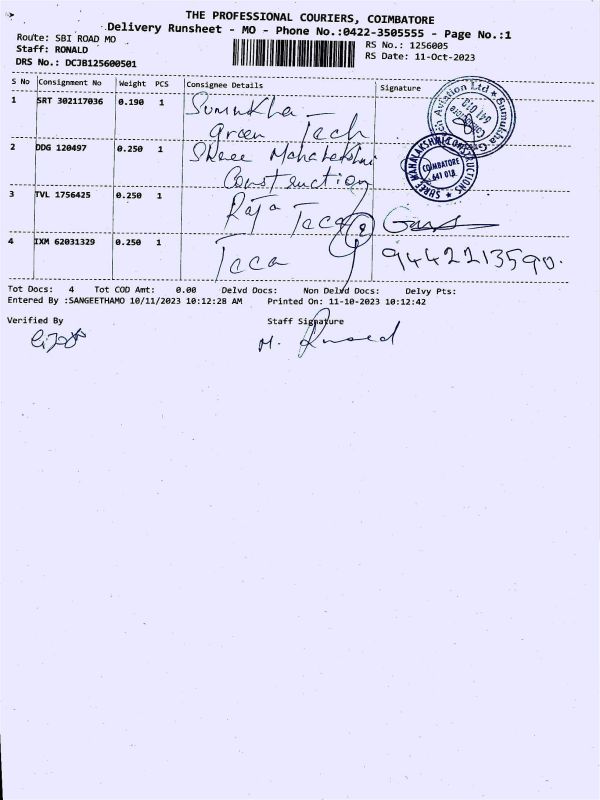 THE PROFESSIONAL COURIERS, COIMBATORE
Delivery Runsheet - MO - Phone No.:0422-3505555 - Page No.:1
Route: SBI ROAD MO
Staff: RONALD
DRS No.: DCJB125600501
RS No.: 1256005
RS Date: 11-Oct-2023
S No Consignment No Weight PCS Consignee Details Signature
1 SRT 302117036 0.190 1 Sumukha
Green Tech
2 DDG 120497 0.250 1 Shree Mahalakshmi
Construction
SHREE MAHALAKSHMI CONSTRUCTIONS
COIMBATORE
641 018
3 TVL 1756425 0.250 1 Raja Taca
4 IXM 62031329 0.250 1 Taca
9442213590.
Tot Docs: 4 Tot COD Amt: 0.00 Delvd Docs: Non Delvd Docs: Delvy Pts:
Entered By :SANGEETHAMO 10/11/2023 10:12:28 AM Printed On: 11-10-2023 10:12:42
Verified By Staff Signature